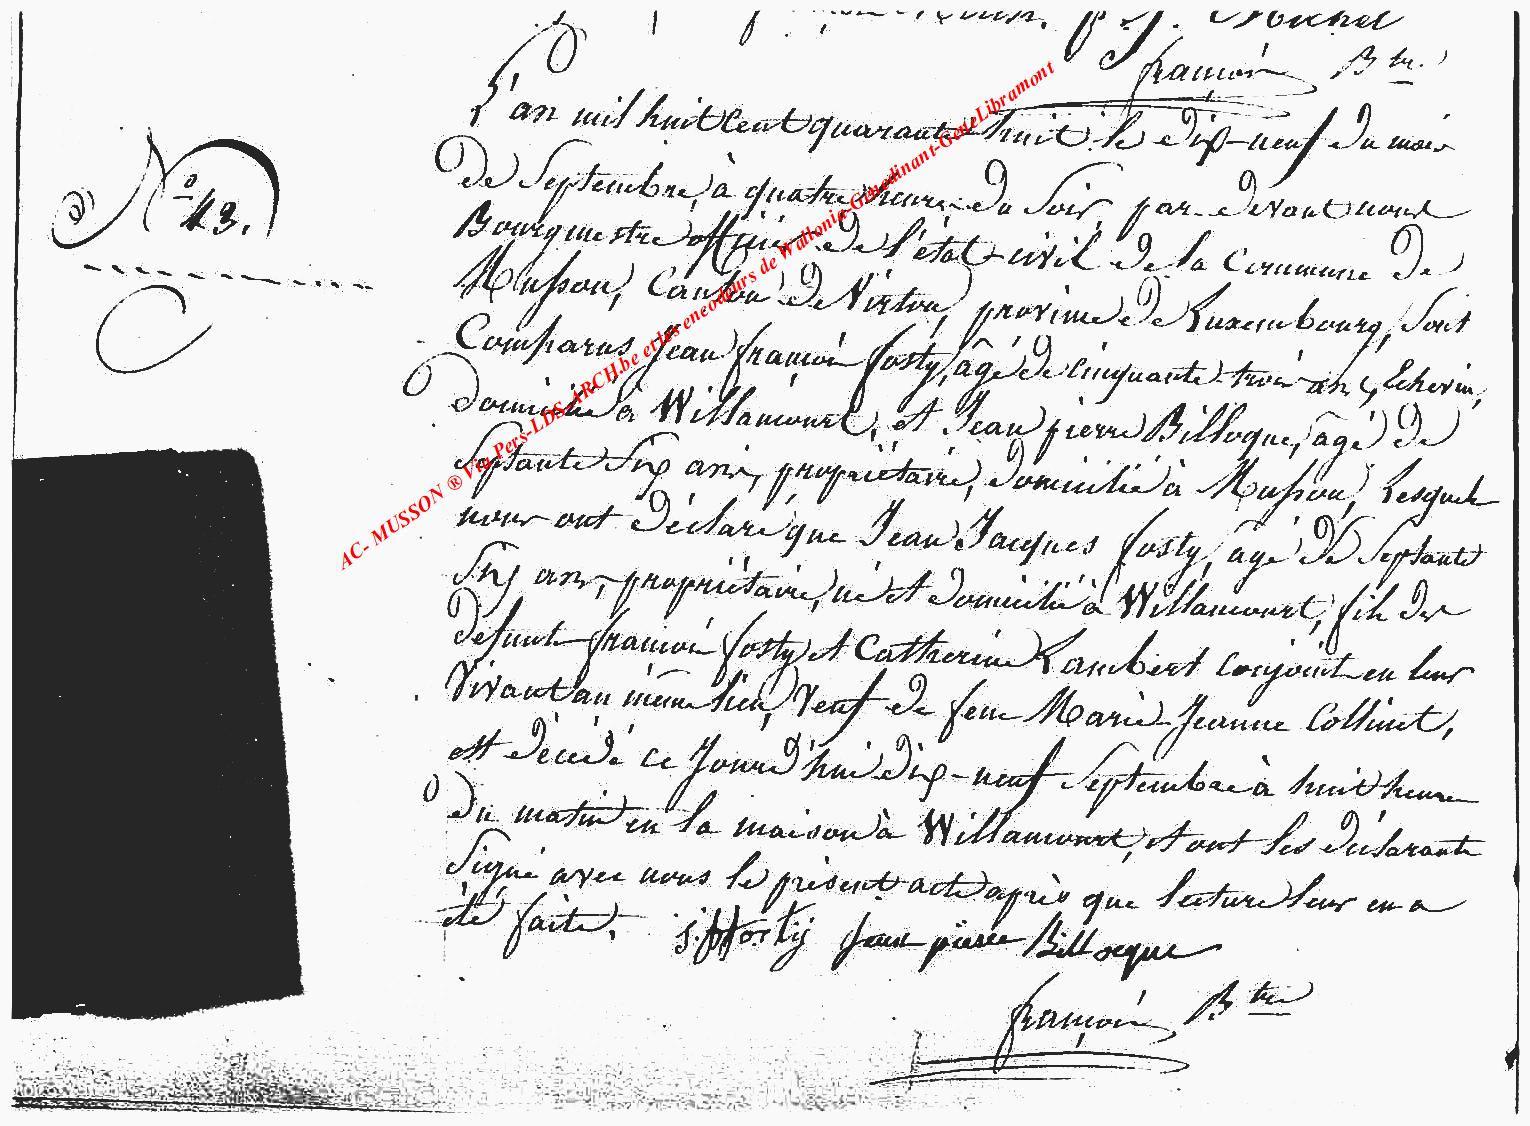 Michel
françois Btre.
L'an mil huit cent quarante-huit le dix-neuf du mois
N° 43.
de Septembre, à quatre heures du Soir, par-devant nous
Bourgmestre officier de l'état-civil de la Commune de
Musson, Canton de Virton, province de Luxembourg, Sont
Comparus Jean françois fosty, âgé de cinquante-trois ans, Echevin,
domicilié à Willancourt, et Jean pierre Billoque, âgé de
Septante Six ans, propriétaire, domicilié à Musson, Lesquels
nous ont déclaré que Jean Jacques fosty, âgé de Septante
Six ans, propriétaire, né et domicilié à Willancourt, fils des
défunts françois fosty et Catherine Lambert conjoint en leur
Vivant au même lieu, Veuf de feue Marie-Jeanne Collinet,
est décédé ce Jourd'hui dix-neuf Septembre à huit heures
du matin en la maison à Willancourt, et ont les déclarants
Signé avec nous le présent acte après que lecture leur en a
été faite. j. f fosty Jean pierre Billoque
françois Btre
AC- MUSSON ® Via Pers-LDS-ARCH.be et les encodeurs de Wallonia-Genedinant-GeneLibramont